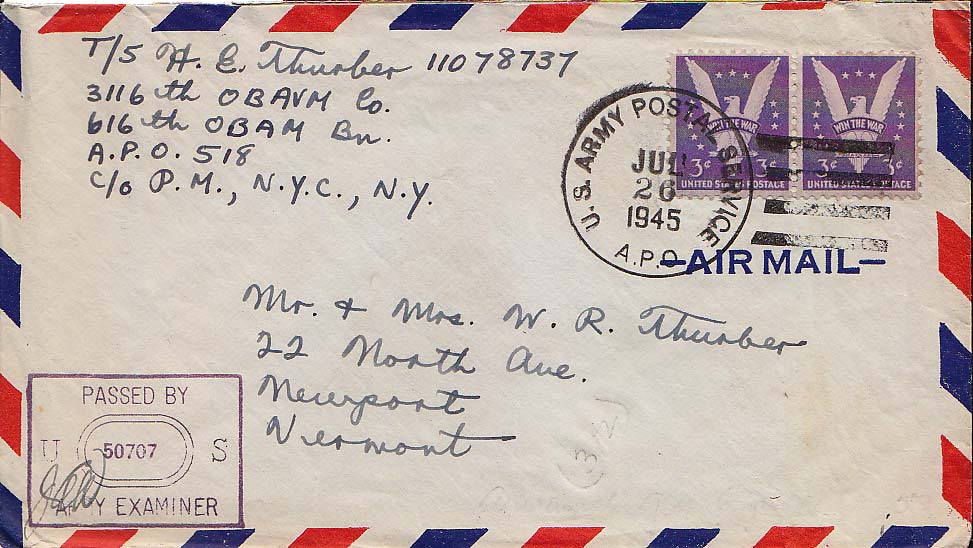 T/5 H. E. Thurber 11078737
3116th OBAVM Co.
616th OBAM Bn.
A.P.O. 518
C/o P.M., N.Y.C., N.Y.
U.S. ARMY POSTAL SERVICE
JUL
26
1945
A.P.O.
WIN THE WAR
3¢ 3¢
UNITED STATES POSTAGE
WIN THE WAR
3¢ 3¢
UNITED STATES POSTAGE
AIR MAIL
Mr. & Mrs. W. R. Thurber
22 North Ave.
Newport
Vermont
PASSED BY
U 50707 S
ARMY EXAMINER